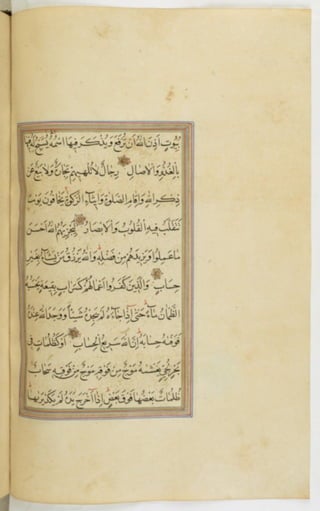 بُيُوتٍ اَذِنَ اللهُ اَنْ تُرْفَعَ وَيُذْكَرَ فِيهَا اسْمُهُ يُسَبِّحُ لَهُ فِيهَا
بِالْغُدُوِّ وَالْاٰصَالِ رِجَالٌ لَا تُلْهِيهِمْ تِجَارَةٌ وَلَا بَيْعٌ عَنْ
ذِكْرِ اللهِ وَاِقَامِ الصَّلٰوةِ وَاِيتَاءِ الزَّكٰوةِ يَخَافُونَ يَوْمًا
تَتَقَلَّبُ فِيهِ الْقُلُوبُ وَالْاَبْصَارُ لِيَجْزِيَهُمُ اللهُ اَحْسَنَ
مَا عَمِلُوا وَيَزِيدَهُمْ مِنْ فَضْلِهِ وَاللهُ يَرْزُقُ مَنْ يَشَاءُ بِغَيْرِ
حِسَابٍ وَالَّذِينَ كَفَرُوا اَعْمَالُهُمْ كَسَرَابٍ بِقِيعَةٍ يَحْسَبُهُ
الظَّمْاٰنُ مَاءً حَتّٰى اِذَا جَاءَهُ لَمْ يَجِدْهُ شَيْئًا وَوَجَدَ اللهَ عِنْدَهُ
فَوَفّٰيهُ حِسَابَهُ اللهُ سَرِيعُ الْحِسَابِ اَوْ كَظُلُمَاتٍ فِي
بَحْرٍ لُجِّيٍّ يَغْشٰيهُ مَوْجٌ مِنْ فَوْقِهِ مَوْجٌ مِنْ فَوْقِهِ سَحَابٌ
ظُلُمَاتٌ بَعْضُهَا فَوْقَ بَعْضٍ اِذَا اَخْرَجَ يَدَهُ لَمْ يَكَدْ يَرٰيهَا